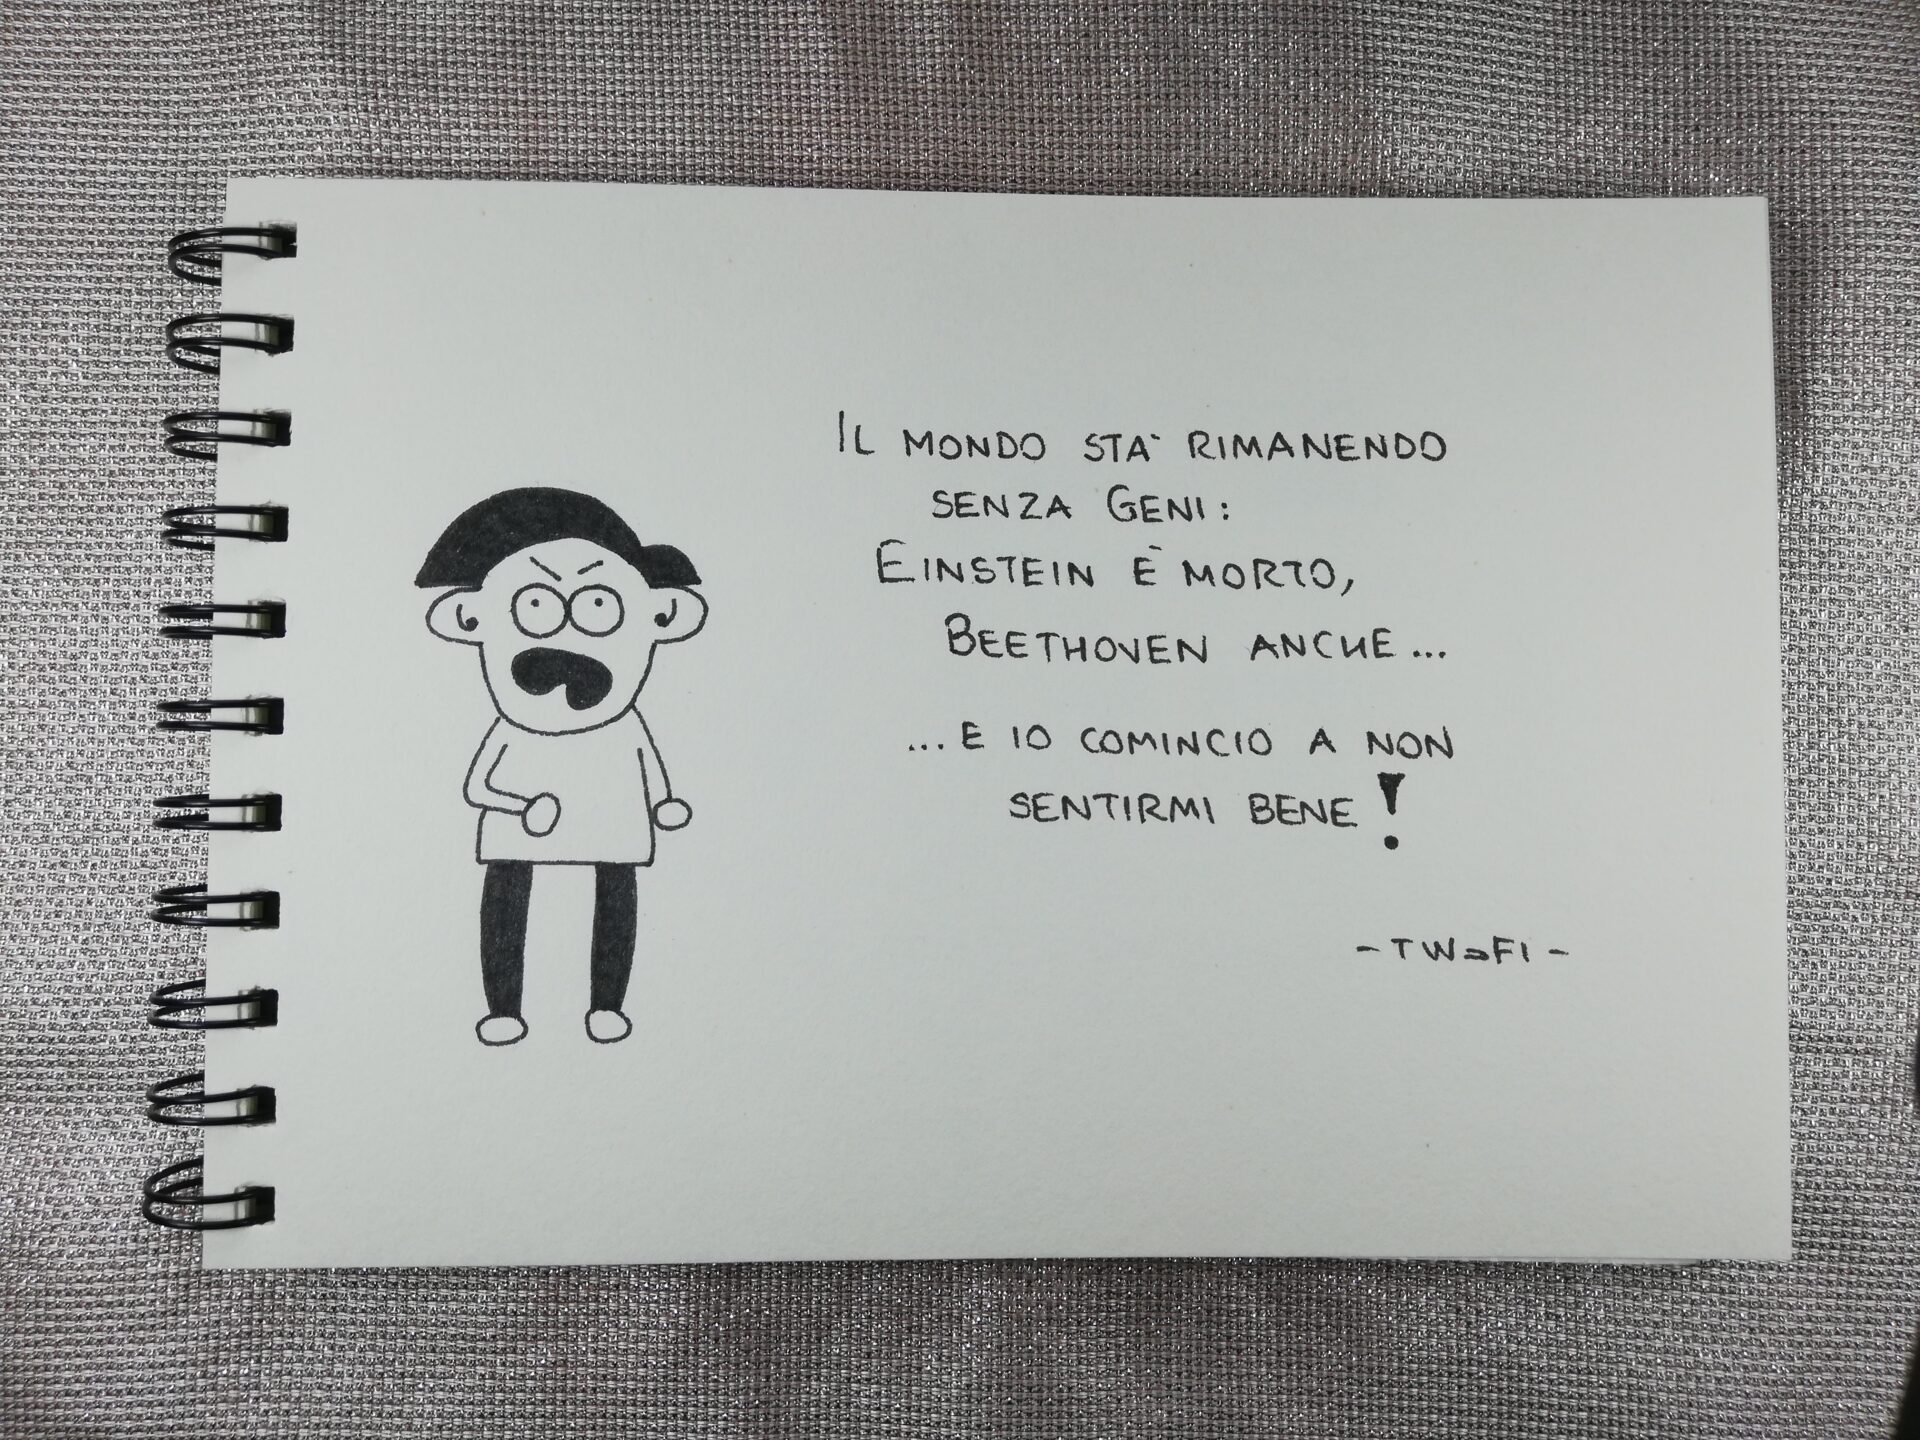 IL MONDO STA' RIMANENDO
SENZA GENI:
EINSTEIN È MORTO,
BEETHOVEN ANCHE...
...E IO COMINCIO A NON
SENTIRMI BENE!
-TWaFI-